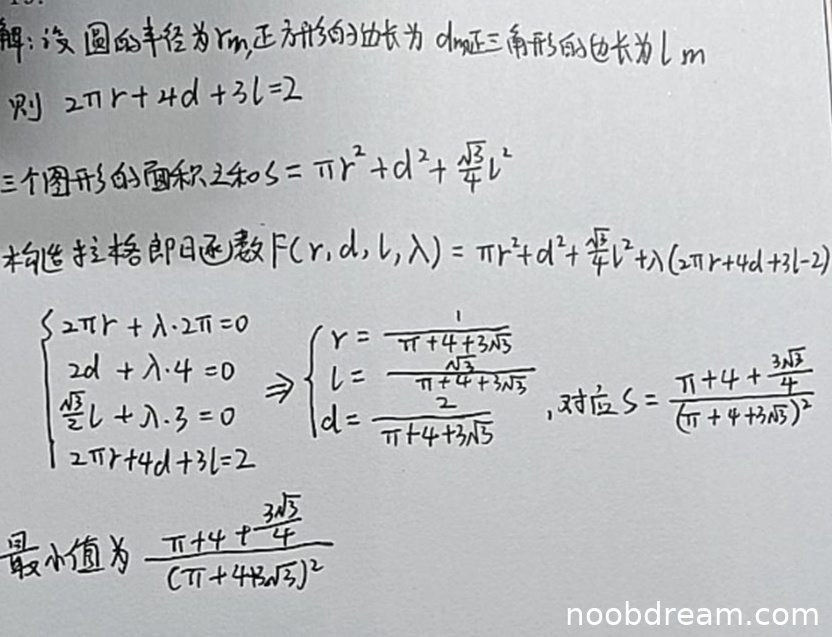 解:设圆的半径为rm,正方形的边长为 dm,正三角形的边长为l m
则 2πr+4d+3l=2
三个图形的面积之和S=πr²+d²+\frac{√3}{4}l²
构造拉格朗日函数F(r,d,l,λ)=πr²+d²+\frac{√3}{4}l²+λ(2πr+4d+3l-2)
{2πr+λ·2π=0
2d+λ·4=0
\frac{√3}{2}l+λ·3=0
2πr+4d+3l=2
⇒ {r=\frac{1}{π+4+3√3}
l=\frac{√3}{π+4+3√3}
d=\frac{2}{π+4+3√3}
,对应S=\frac{π+4+\frac{3√3}{4}}{(π+4+3√3)²}
最小值为 \frac{π+4+\frac{3√3}{4}}{(π+4+3√3)²}
noobdream.com